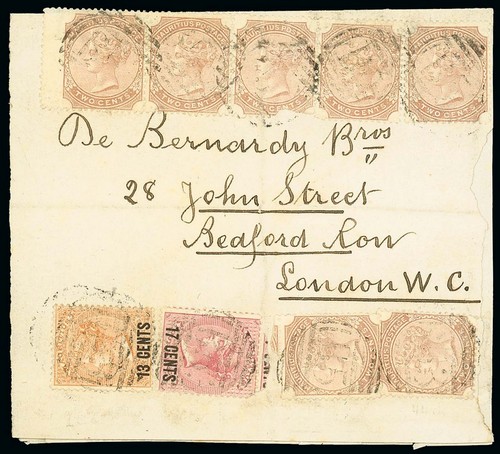 MAURITIUS POSTAGE
TWO CENTS TWO CENTS TWO CENTS TWO CENTS TWO CENTS
De Bernardy Bros
28 John Street
Bedford Row
London W. C.
13 CENTS
17 CENTS
CENTS